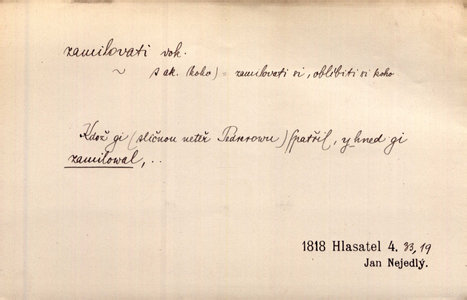 zamilovati vok.
~ s ak. (koho) = zamilovati si, oblíbiti si koho
Když gi (sličnou neteř Pedrovowu) spatřil, y hned gi
zamilowal, ..
1818 Hlasatel 4. 33, 19
Jan Nejedlý.